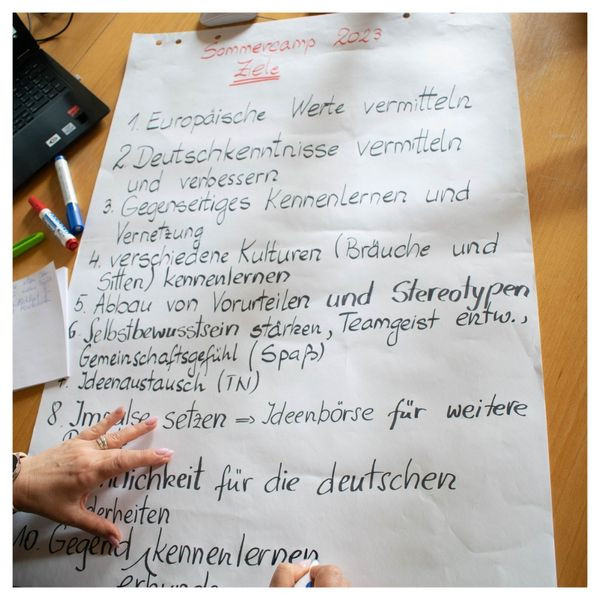 Sommercamp 2023
Ziele
1. Europäische Werte vermitteln
2 Deutschkenntnisse vermitteln
und verbessern
3. Gegenseitiges Kennenlernen und
Vernetzung
4. verschiedene Kulturen (Bräuche und
Sitten) kennenlernen
5. Abbau von Vorurteilen und Stereotypen
6. Selbstbewusstsein stärken, Teamgeist entw.,
Gemeinschaftsgefühl (Spaß)
7. Ideenaustausch (TN)
8. Impulse setzen ⇒ Ideenbörse für weitere
für die deutschen
10. Gegend kennenlernen